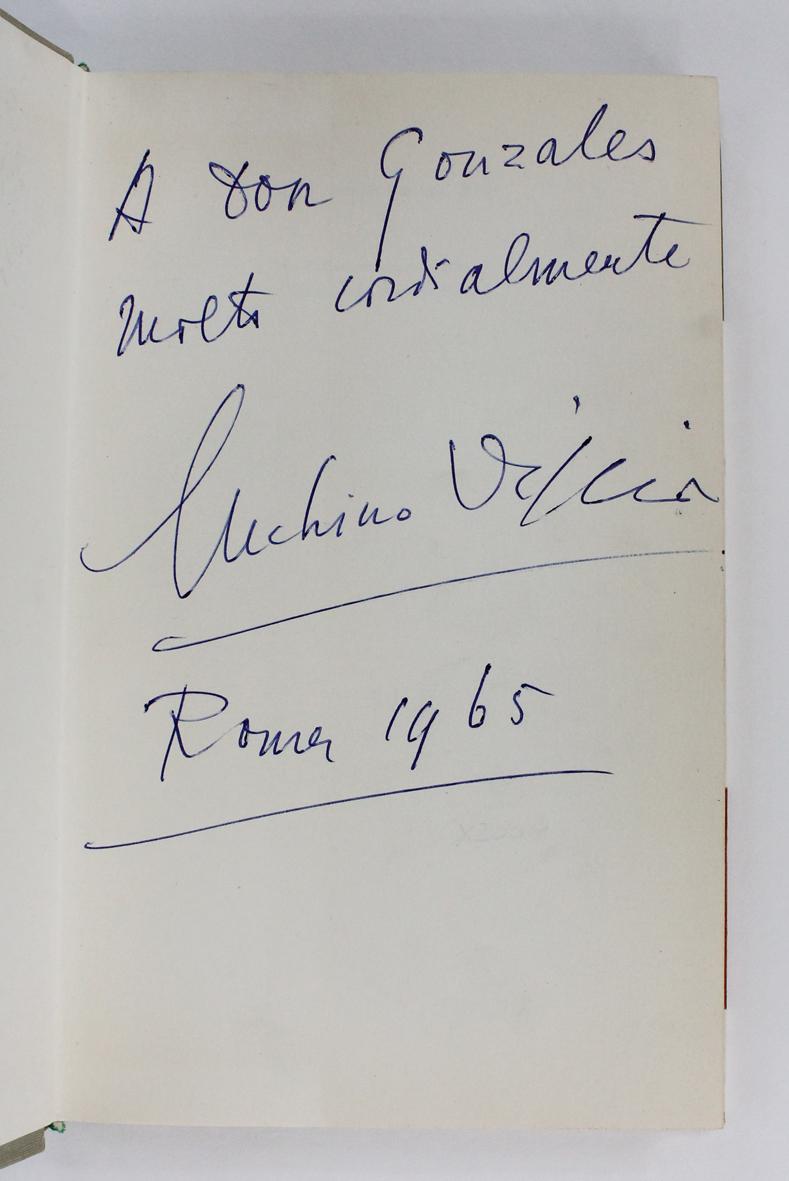 A Don Gonzales
molto cordialmente
Luchino Visconti
Roma 1965